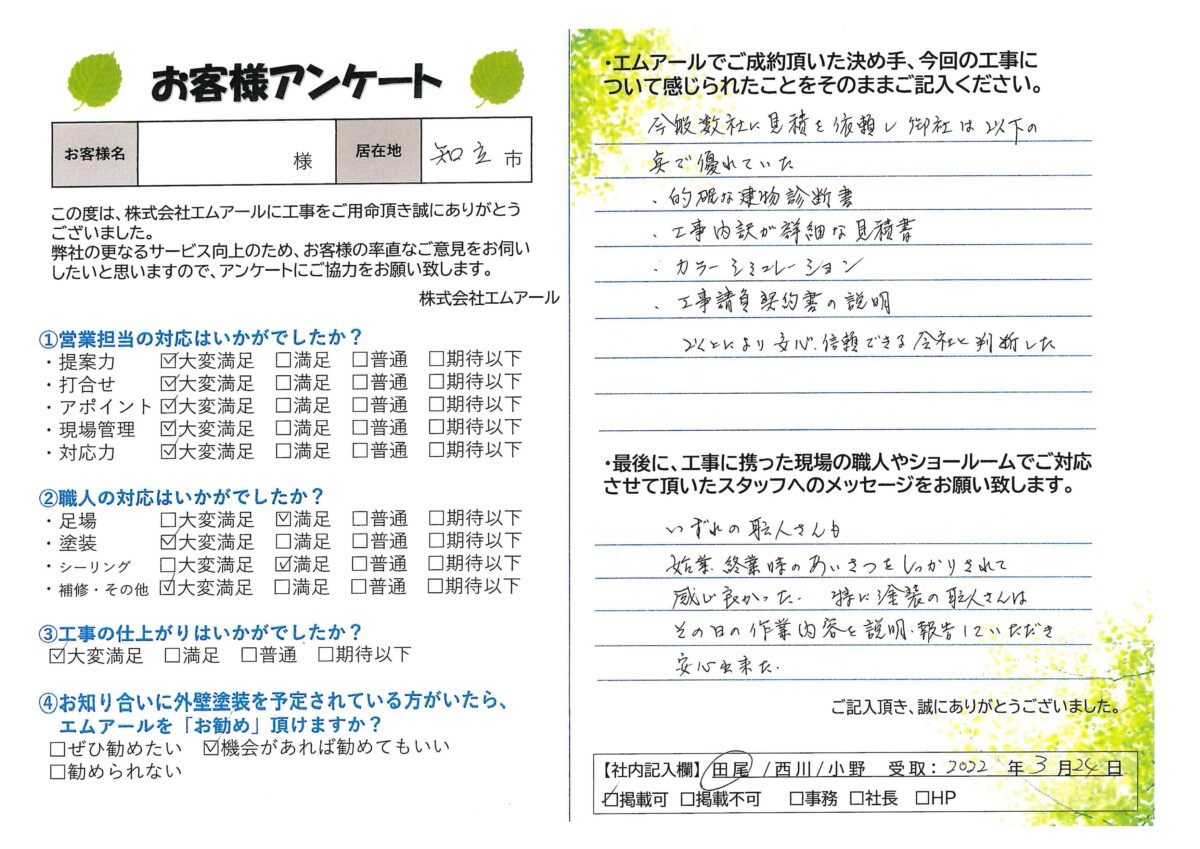 お客様アンケート
お客様名 様 居在地 知立 市
この度は、株式会社エムアールに工事をご用命頂き誠にありがとう
ございました。
弊社の更なるサービス向上のため、お客様の率直なご意見をお伺い
したいと思いますので、アンケートにご協力をお願い致します。
株式会社エムアール
①営業担当の対応はいかがでしたか?
・提案力 ☑大変満足 □満足 □普通 □期待以下
・打合せ ☑大変満足 □満足 □普通 □期待以下
・アポイント ☑大変満足 □満足 □普通 □期待以下
・現場管理 ☑大変満足 □満足 □普通 □期待以下
・対応力 ☑大変満足 □満足 □普通 □期待以下
②職人の対応はいかがでしたか?
・足場 □大変満足 ☑満足 □普通 □期待以下
・塗装 ☑大変満足 □満足 □普通 □期待以下
・シーリング □大変満足 ☑満足 □普通 □期待以下
・補修・その他 ☑大変満足 □満足 □普通 □期待以下
③工事の仕上がりはいかがでしたか?
☑大変満足 □満足 □普通 □期待以下
④お知り合いに外壁塗装を予定されている方がいたら、
エムアールを「お勧め」頂けますか?
□ぜひ勧めたい ☑機会があれば勧めてもいい
□勧められない
・エムアールでご成約頂いた決め手、今回の工事に
ついて感じられたことをそのままご記入ください。
今般数社に見積を依頼し御社は以下の
点で優れていた
・的確な建物診断書
・工事内訳が詳細な見積書
・カラーシミュレーション
・工事請負契約書の説明
により安心・信頼できる会社と判断した
・最後に、工事に携った現場の職人やショールームでご対応
させて頂いたスタッフへのメッセージをお願い致します。
いずれの職人さんも
始業 終業時のあいさつをしっかりされて
感じ良かった. 特に塗装の職人さんは
その日の作業内容を説明・報告していただき
安心出来た.
ご記入頂き、誠にありがとうございました。
【社内記入欄】 田尾 /西川/小野 受取:2022 年 3 月 24 日
☑掲載可 □掲載不可 □事務 □社長 □HP